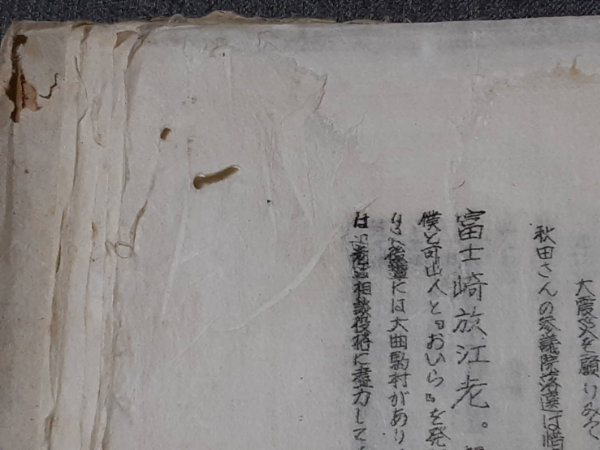 大震災を顧りみて
秋田さんの参議院落選は惜
富士崎放江老。
僕と可山人と『おいら』を発
りに後輩には大田駒村があり
は 相談役格に盡力して